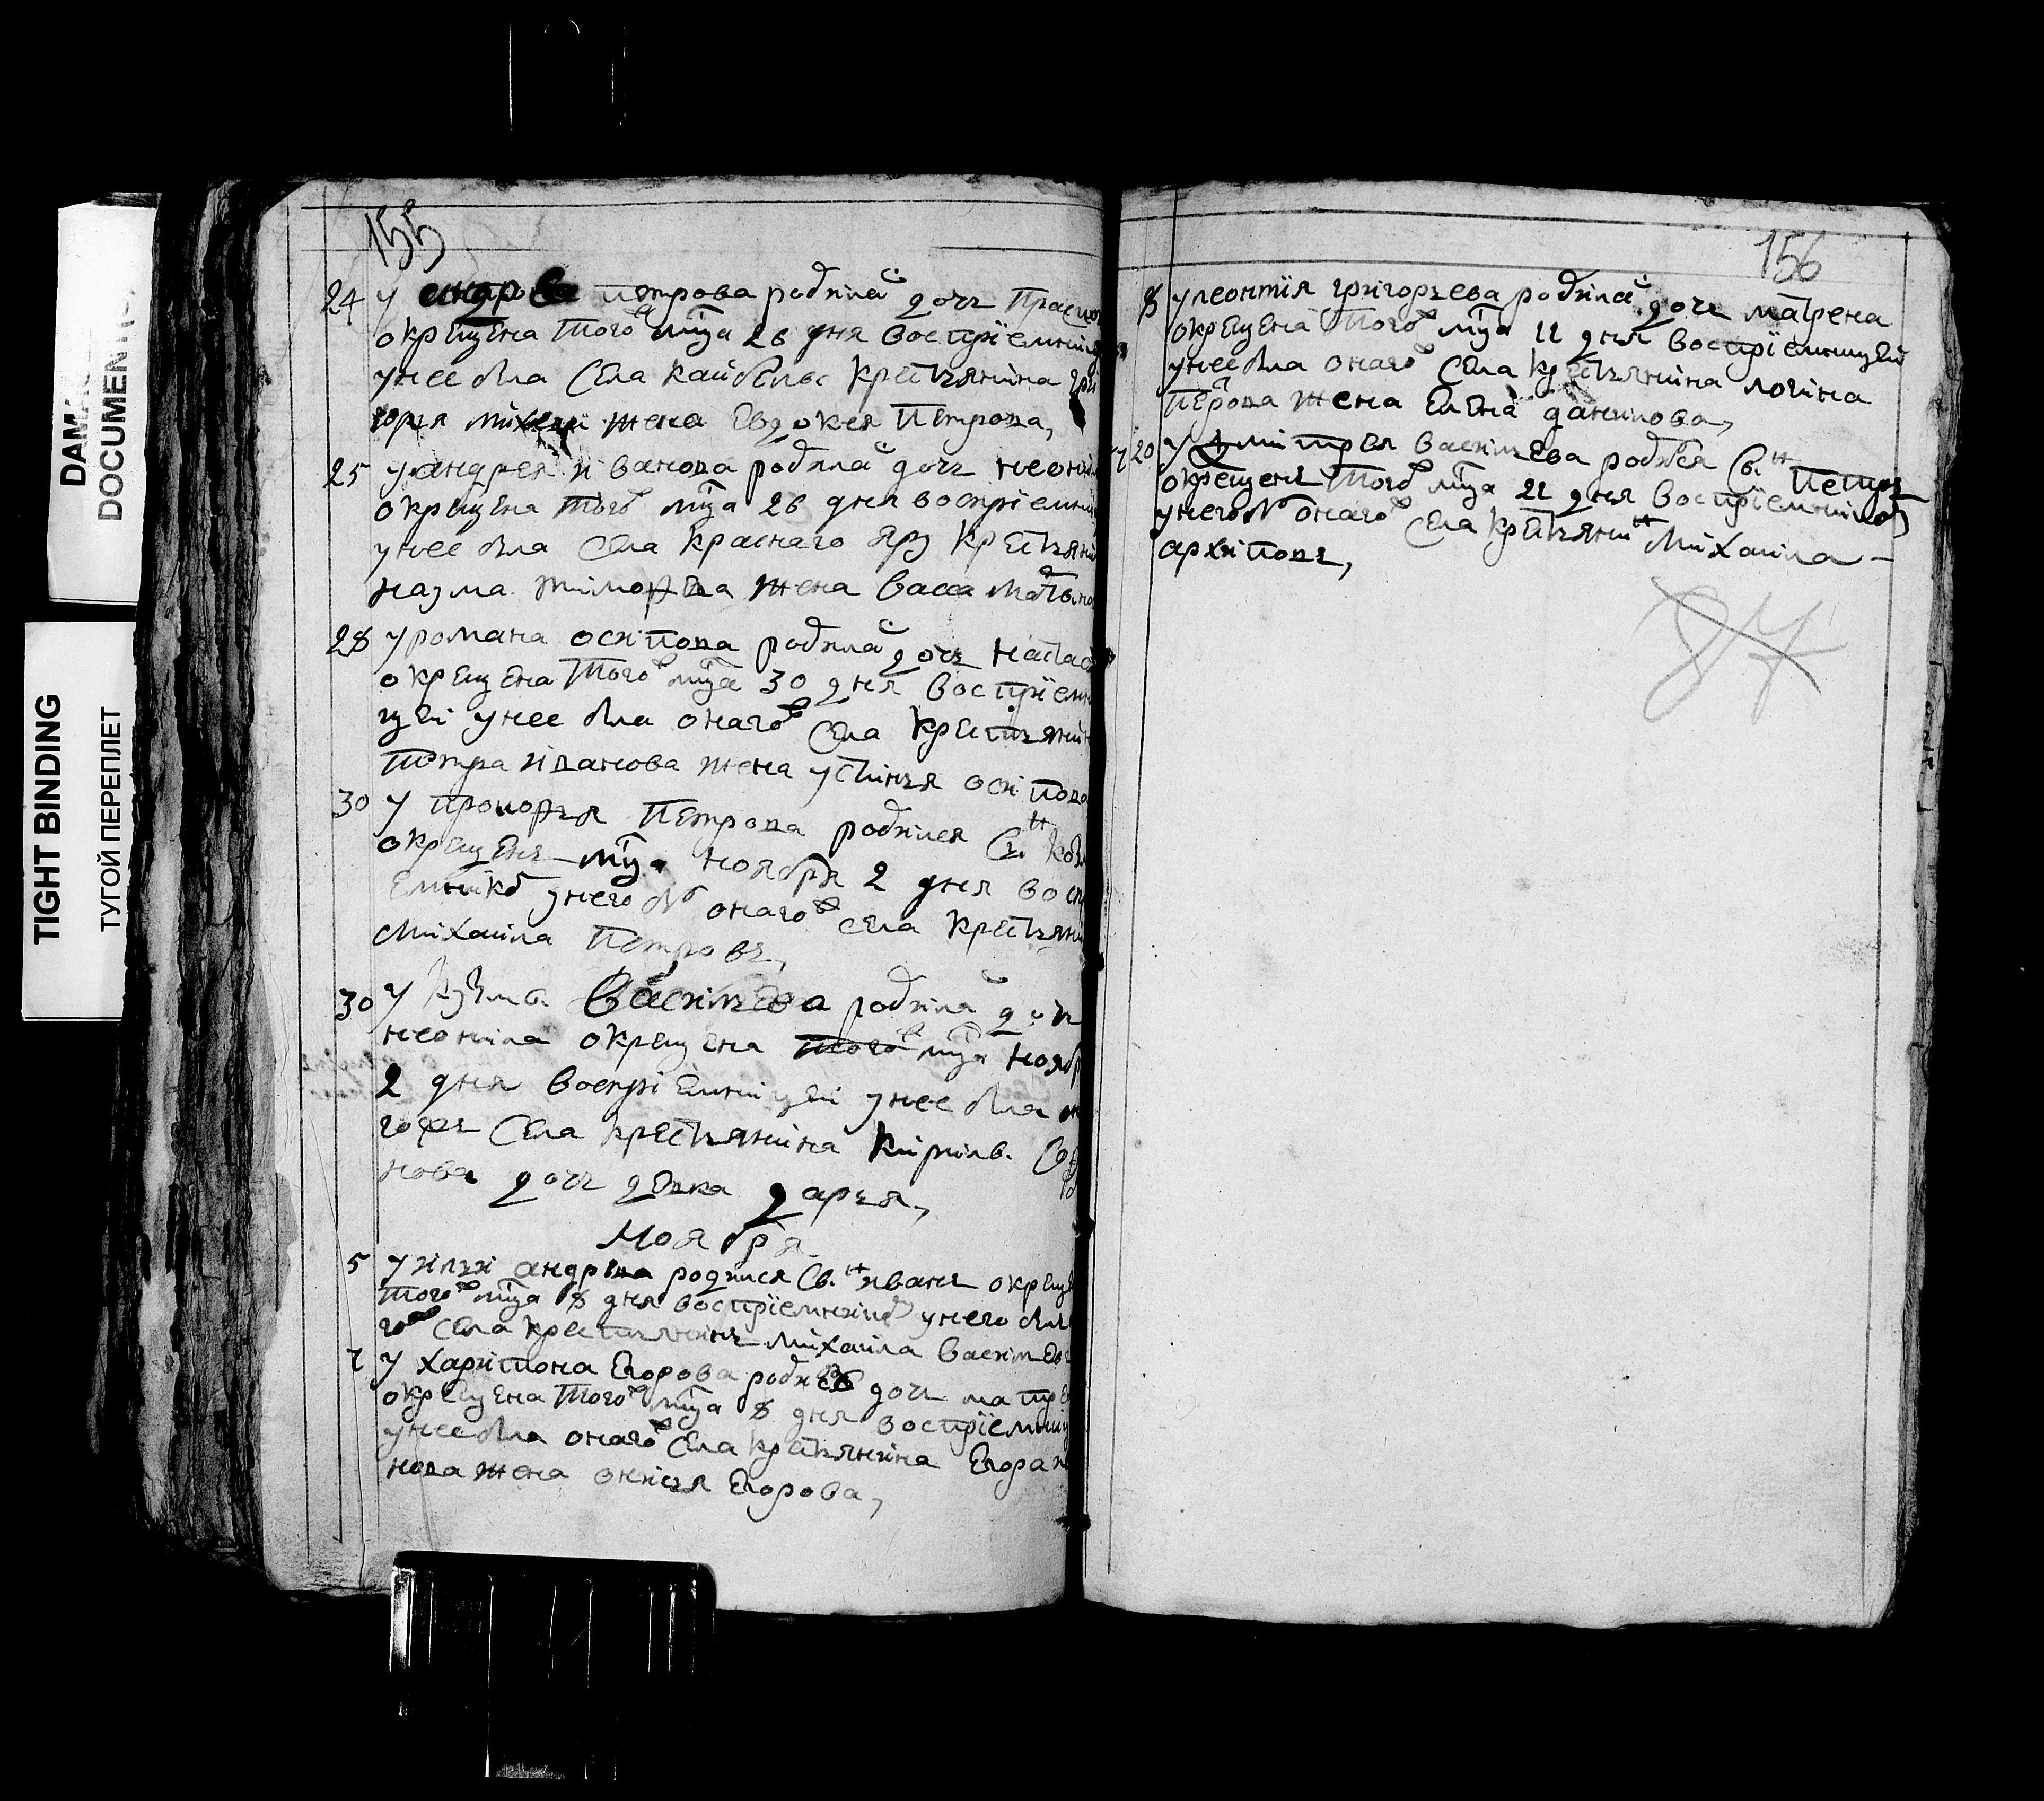 155
24 У андрѣя Петрова родилас дочь Праско
окрещена того мца 26 дня восприемниц
унее была села Кайбелъ крестьянина гри
горья михеи жена Евдокея Петрова,
25 У андрея ивановa родилас дочь неони
окрещена того мца 26 дня восприемни
унее была села Краснаго яру крестьяни
наума жена васса
28 У романа осипова родилас дочь наста
окрещена того мца 30 дня восприемн
цеи унее была онагож села крестьянин
Петра иванова жена устинья осипова
30 У прокофья Петрова родился снъ Козм
окрещенъ мца ноября 2 дня восп
емнико унего был онагож села крестьяни
Михаила Петровъ,
30 У Кузмы Васильева родилас дочь
неонила окрещена того мца нояб
2 дня восприемницеи унее была он
гожъ села крестьянина Кирила
нова дочь девка дарья,
Ноября
5 У ильи андреева родился снъ иванъ окреще
того мца 8 дня восприемникомъ унего был
гож села крестьянинъ михаила василев
7 У харитона Егорова родилас дочь матре
окрещена того мца 8 дня восприемниц
унее была онагож села крестьянина Егора
нова жена онисья Егорова,
156
8 У леонтия григорьева родилас дочь матрена
окрещена того мца 11 дня восприемницеи
унее была онагож села крестьянина логина
Петрова жена Елена данилова,
20 У дмитрея василева родился снъ Петръ
окрещенъ того мца 22 дня восприемником
унего был онагож села крестьянин михаила
архиповъ,
87
DOCUMENT
TIGHT BINDING
ТУГОЙ ПЕРЕПЛЕТ